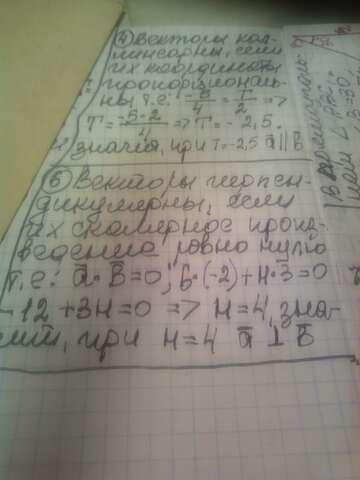 ④ Векторы кол-
линеарны, если
их координаты
пропорциональ-
ны т.е: -5/4 = T/2 =>
T = -5·2/4 => T = -2,5.
значит, при T = -2,5 a̅ || B̅
⑤ Векторы перпен-
дикулярны, если
их скалярное произ-
ведение равно нулю
т.е: a̅ · B̅ = 0; 6·(-2) + H·3 = 0
-12 + 3H = 0 => H = 4, зна-
чит, при H = 4 a̅ ⊥ B̅